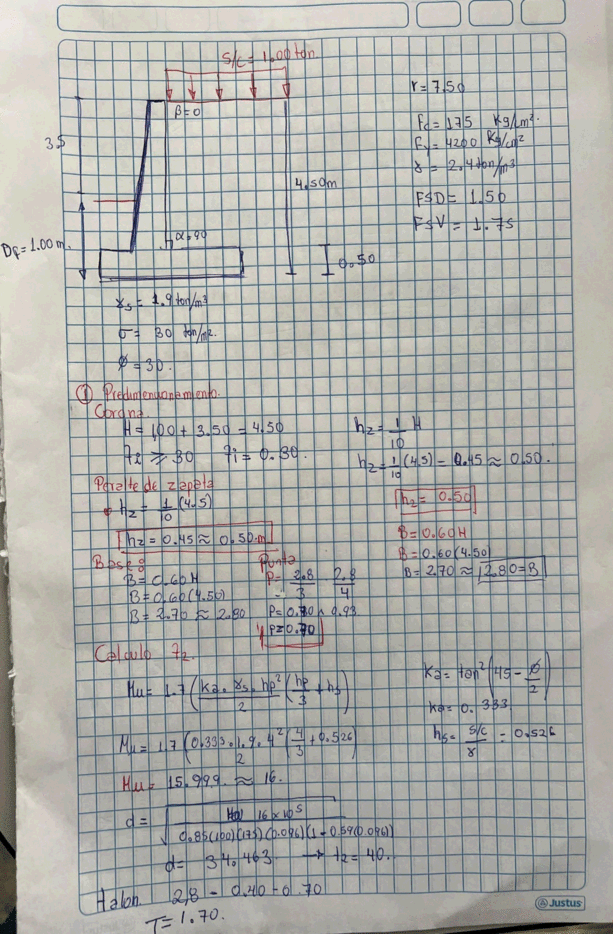 s/c = 1.00 ton
β=0
3.5
4.50m
α=90
Df = 1.00 m.
0.50
r = 7.50
f'c = 175 Kg/cm².
Fy = 4200 Kg/cm²
γ = 2.4 ton/m³
FSD = 1.50
FSV = 1.75
γs = 1.9 ton/m³
σ = 30 ton/m².
ϕ = 30.
① Predimensionamiento.
Corona
H = 1,00 + 3.50 = 4.50
≥ 30 = 0.30.
h2 = 1/10 H
h2 = 1/10 (4.5) = 0.45 ≈ 0.50.
h2 = 0.50
Peralte de zapata
h2 = 1/10 (4.5)
h2 = 0.45 ≈ 0.50 m
B = 0.60H
B = 0.60(4.50)
B = 2.70 ≈ 2.80 = B
Base
B = 0.60 H
B = 0.60 (4.50)
B = 2.70 ≈ 2.80
Punta
P = 2.8/3 2.8/4
P = 0.70 0.93
P = 0.70
Calculo t2.
Mu = 1.7 (ka . γs . hp²/2 (hp/3 + hs)
ka = tan² (45 - ϕ/2)
ka = 0.333
hs = s/c / γ = 0.526
Mu = 1.7 (0.333 . 1.9 . 4²/2 (4/3 + 0.526)
Mu = 15.999 ≈ 16.
d = √ 16 x 10⁵ / 0.85(100)(175)(0.096)(1 - 0.59(0.096))
d = 34.463 → t2 = 40.
Talon. 2,8 - 0.40 - 0.70
T = 1.70.
Justus